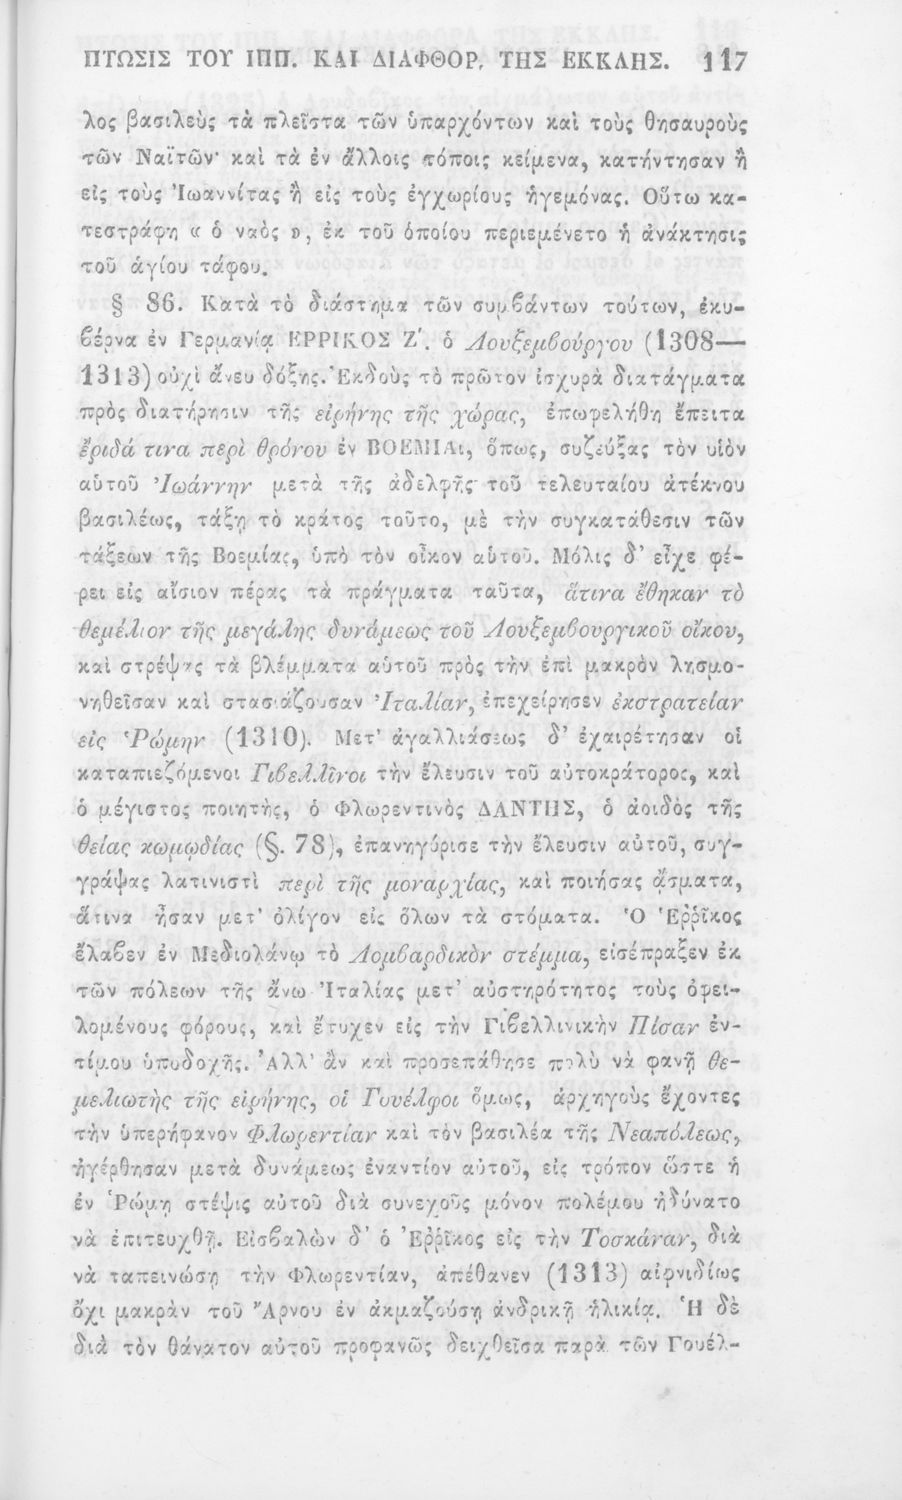 ΠΤΩΣΙΣ ΤΟΥ ΙΠΠ. ΚΑΙ ΔΙΑΦΘΟΡ. ΤΗΣ ΕΚΚΛΗΣ. 117
λος βασιλεὺς τὰ πλεῖστα τῶν ὑπαρχόντων καὶ τοὺς θησαυροὺς
τῶν Ναϊτῶν· καὶ τὰ ἐν ἄλλοις τόποις κείμενα, κατήντησαν ἢ
εἰς τοὺς Ἰωαννίτας ἢ εἰς τοὺς ἐγχωρίους ἡγεμόνας. Οὕτω κα-
τεστράφη « ὁ ναὸς », ἐκ τοῦ ὁποίου περιεμένετο ἡ ἀνάκτησις
τοῦ ἁγίου τάφου.
§ 86. Κατὰ τὸ διάστημα τῶν συμβάντων τούτων, ἐκυ-
βέρνα ἐν Γερμανίᾳ ΕΡΡΙΚΟΣ Ζʹ. ὁ Λουξεμβούργου (1308—
1313) οὐχὶ ἄνευ δόξης. Ἐκδοὺς τὸ πρῶτον ἰσχυρὰ διατάγματα
πρὸς διατήρησιν τῆς εἰρήνης τῆς χώρας, ἐπωφελήθη ἔπειτα
ἔριδά τινα περὶ θρόνου ἐν ΒΟΕΜΙΑι, ὅπως, συζεύξας τὸν υἱὸν
αὑτοῦ Ἰωάννην μετὰ τῆς ἀδελφῆς τοῦ τελευταίου ἀτέκνου
βασιλέως, τάξῃ τὸ κράτος τοῦτο, μὲ τὴν συγκατάθεσιν τῶν
τάξεων τῆς Βοεμίας, ὑπὸ τὸν οἶκον αὑτοῦ. Μόλις δ' εἶχε φέ-
ρει εἰς αἴσιον πέρας τὰ πράγματα ταῦτα, ἅτινα ἔθηκαν τὸ
θεμέλιον τῆς μεγάλης δυνάμεως τοῦ Λουξεμβουργικοῦ οἴκου,
καὶ στρέψας τὰ βλέμματα αὑτοῦ πρὸς τὴν ἐπὶ μακρὸν λησμο-
νηθεῖσαν καὶ στασιάζουσαν Ἰταλίαν, ἐπεχείρησεν ἐκστρατείαν
εἰς Ῥώμην (1310). Μετ' ἀγαλλιάσεως δ' ἐχαιρέτησαν οἱ
καταπιεζόμενοι Γιβελλῖνοι τὴν ἔλευσιν τοῦ αὐτοκράτορος, καὶ
ὁ μέγιστος ποιητὴς, ὁ Φλωρεντινὸς ΔΑΝΤΗΣ, ὁ ἀοιδὸς τῆς
θείας κωμῳδίας (§. 78), ἐπανηγύρισε τὴν ἔλευσιν αὐτοῦ, συγ-
γράψας λατινιστὶ περὶ τῆς μοναρχίας, καὶ ποιήσας ᾄσματα,
ἅτινα ἦσαν μετ' ὀλίγον εἰς ὅλων τὰ στόματα. Ὁ Ἐῤῥῖκος
ἔλαβεν ἐν Μεδιολάνῳ τὸ Λομβαρδικὸν στέμμα, εἰσέπραξεν ἐκ
τῶν πόλεων τῆς ἄνω Ἰταλίας μετ' αὐστηρότητος τοὺς ὀφει-
λομένους φόρους, καὶ ἔτυχεν εἰς τὴν Γιβελλινικὴν Πίσαν ἐν-
τίμου ὑποδοχῆς. Ἀλλ' ἂν καὶ προσεπάθησε πολὺ νὰ φανῇ θε-
μελιωτὴς τῆς εἰρήνης, οἱ Γουέλφοι ὅμως, ἀρχηγοὺς ἔχοντες
τὴν ὑπερήφανον Φλωρεντίαν καὶ τὸν βασιλέα τῆς Νεαπόλεως,
ἠγέρθησαν μετὰ δυνάμεως ἐναντίον αὐτοῦ, εἰς τρόπον ὥστε ἡ
ἐν Ῥώμῃ στέψις αὐτοῦ διὰ συνεχοῦς μόνον πολέμου ἠδύνατο
νὰ ἐπιτευχθῇ. Εἰσβαλὼν δ' ὁ Ἐῤῥῖκος εἰς τὴν Τοσκάναν, διὰ
νὰ ταπεινώσῃ τὴν Φλωρεντίαν, ἀπέθανεν (1313) αἰφνιδίως
ὄχι μακρὰν τοῦ Ἄρνου ἐν ἀκμαζούσῃ ἀνδρικῇ ἡλικίᾳ. Ἡ δὲ
διὰ τὸν θάνατον αὐτοῦ προφανῶς δειχθεῖσα παρὰ τῶν Γουέλ-